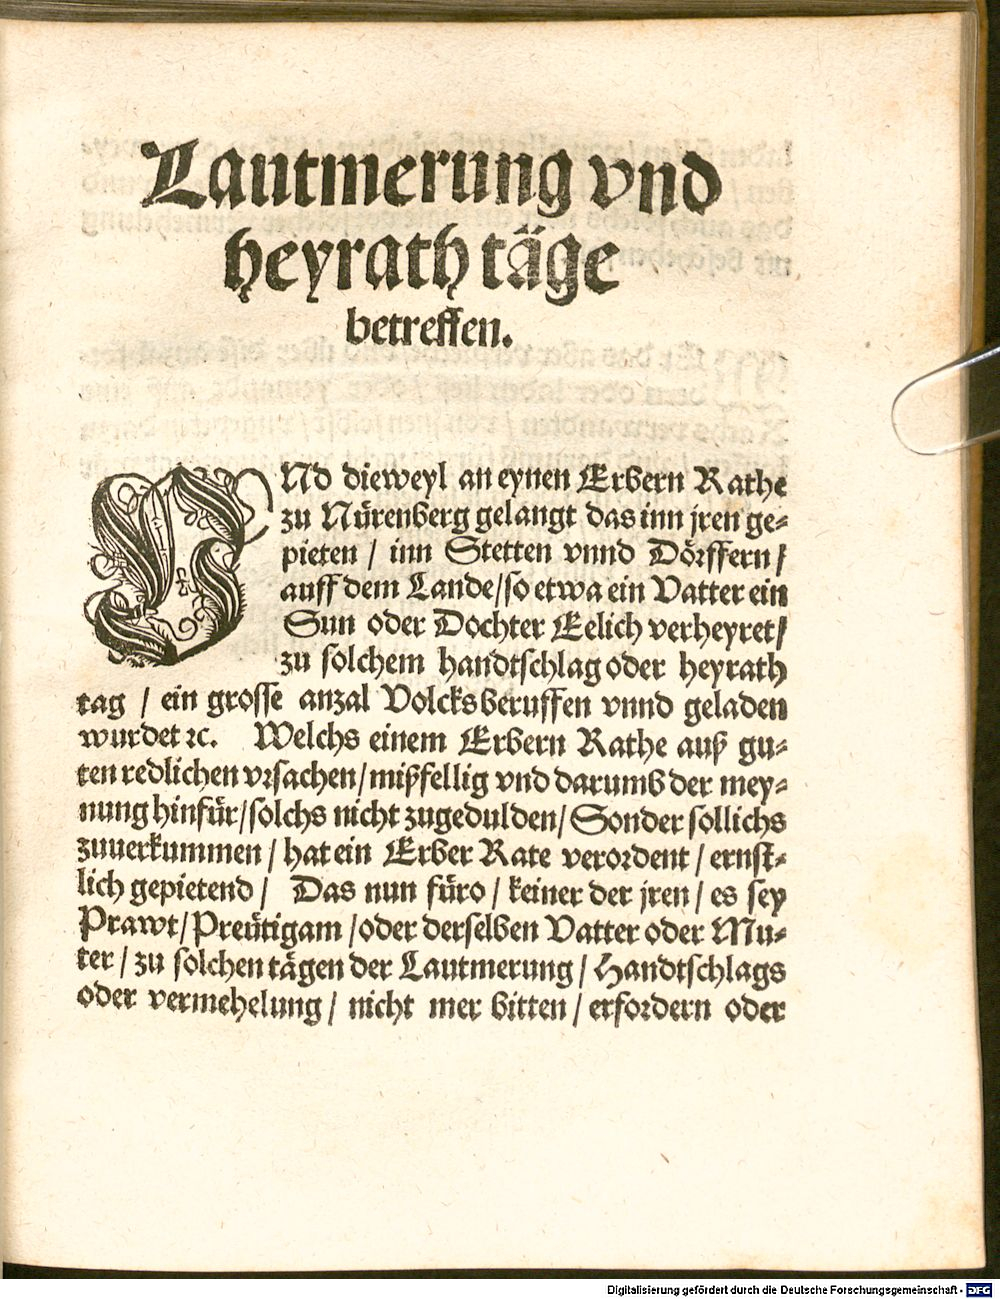 Lautmerung vnd
heyrath täge
betreffen.
VNd dieweyl an eynen Erbern Rathe
zu Nürenberg gelangt das inn jren ge-
pieten / inn Stetten vnnd Dörffern /
auff dem Lande / so etwa ein Vatter ein
Sun oder Dochter Eelich verheyret /
zu solchem handtschlag oder heyrath
tag / ein grosse anzal Volcks beruffen vnnd geladen
wurdet ꝛc. Welchs einem Erbern Rathe auß gu-
ten redlichen vrsachen / mißfellig vnd darumb der mey-
nung hinfür / solchs nicht zugedulden / Sonder sollichs
zuuerkummen / hat ein Erber Rate verordent / ernst-
lich gepietend / Das nun füro / keiner der jren / es sey
Prawt / Preütigam / oder derselben Vatter oder Mu-
ter / zu solchen tägen der Lautmerung / Handtschlags
oder vermehelung / nicht mer bitten / erfordern oder
Digitalisierung gefördert durch die Deutsche Forschungsgemeinschaft - DFG